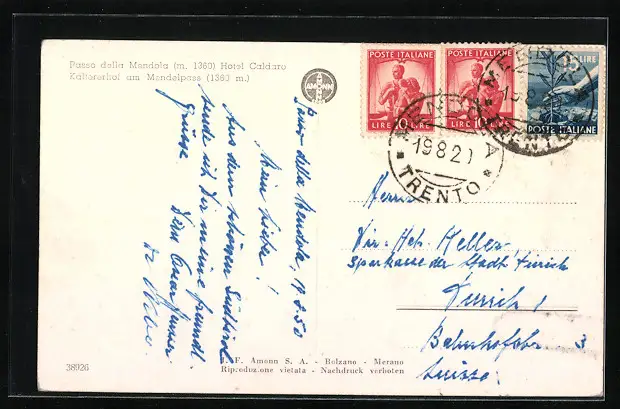 Passo della Mendola (m. 1360) Hotel Caldaro
Kaltererhof am Mendelpass (1360 m.)
AMONN
POSTE ITALIANE
LIRE 10 LIRE
POSTE ITALIANE
LIRE 10 LIRE
LIRE
POSTE ITALIANE
TRENTO
19820
TRENTO
Passo della Mendola, 19.8.50
Mein Lieber!
Aus dem schönen Südtirol
sende ich Dir meine freundl.
Grüsse
Dein
Herrn
Dir. Hch. Keller,
Sparkasse der Stadt Zürich
Zurich 1
Bahnhofstr. 3
Suisse.
38926
F. Amonn S. A. - Bolzano - Merano
Riproduzione vietata - Nachdruck verboten